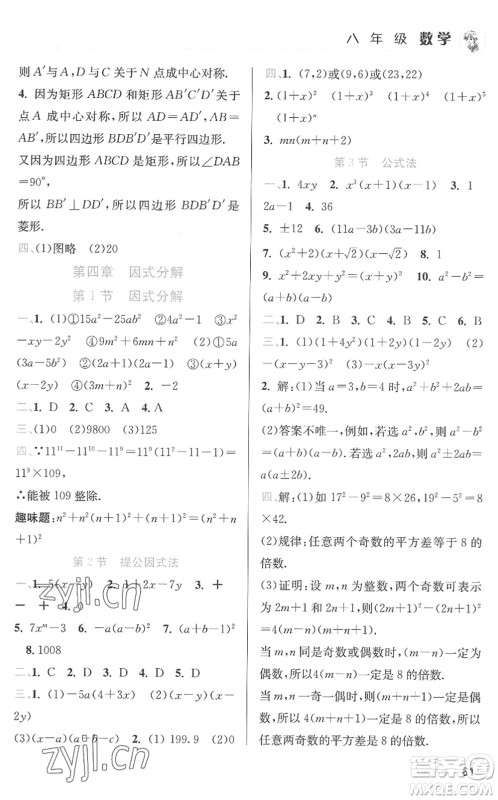 八 年 级 数学
则 A′与 A、D′与 D 关于 E 点成中心对称.
4. 因为矩形 ABCD 和矩形 AB′C′D′关于
点 A 成中心对称, 所以 AD=AD′, AB=
AB′, 所以四边形 BDB′D′是平行四边形.
又因为四边形 ABCD 是矩形, 所以∠DAB
=90°,
所以 BB′⊥DD′, 所以四边形 BDB′D′是
菱形.
四、(1)图略 (2)20
第四章 因式分解
第 1 节 因式分解
一、1. (1)①15a²-25ab² ②
-xy-2y² ④9m²+6mn+n² (2)①5a
(3a-5b²) ②3(x+y)
(x-2y) ④(3m+n)² 2. ④ 3. 4
二、1. D 2. C 3. A 4. A
三、(1)0 (2)9800 (3)125
四、∵11¹¹-11¹⁰-11⁹
11⁹×109,
∴能被 109 整除.
趣味题: n²+n²(n+1)²+(n+1)²=(n²+n+1)²
第 2 节 提公因式法
5. 7xᵐ-3 6. -a(a-b)² 7. (a+b-1)²
8. 1008
二、1. C 2. D 3. D 4. A 5. D
三、1. (1)-4(a-5)(2a-5) (2)(x-y)(x-
2y)
(3)(x-a)(a-b-c) 2. (1)199.9 (2)0
四、(1)(7,2)或(9,6)或(23,22)
2. (1+x)² (1+x)³ (1+x)⁴ (1+
x)ⁿ⁺¹
3. mn(m+n+2)
第 3 节 公式法
一、1. 4xy 2. x³(x+1)(x-1) 3. 1
2a-1 4. 36
5. ±12 6. (a-b)(a-b+1)
7. (x²+2)(x+√2)(x-√2) 8. 1
9. x²+2x=x(x+2)
二、1. D 2. C 3. C 4. D 5. D
三、1. (1)(1+4y²)(1+2y)(1-2y) (2)
(2)-(x-3)² (3)-y(2x-y)²
2. 解: (1)当 a=3, b=4 时, a²+2ab+b²
=(a+b)²=49.
(2)答案不唯一, 例如, 若选 a², b², 则 a²-
b²=(a+b)(a-b). 若选
四、解: (1)
(2)规律: 任意两个奇数的平方差等于 8 的
倍数.
(3)证明: 设 m, n 为整数, 两个奇数可表示
为 2m+1 和 2n+1, 则(2m+1)²-(2n+
1)²=4(m-n)(m+n+1).
当 m, n 同是奇数或偶数时, m-n 一定为
偶数, 所以 4(m-n)一定是 8 的倍数.
当 m, n 一奇一偶时, 则 m+n+1 一定为偶
数, 所以 4(m+n+1)一定是 8 的倍数.
所以, 任意两奇数的平方差是 8 的倍数.
zyjl.cn
zyjl.cn
答案圈